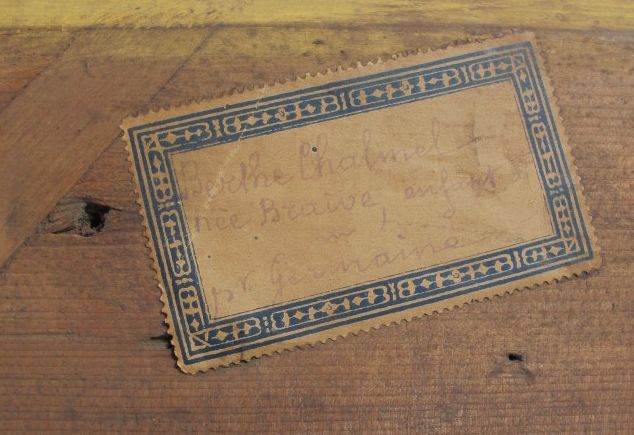 Berthe Chalmel
née Braive, enfant
pr Germaine